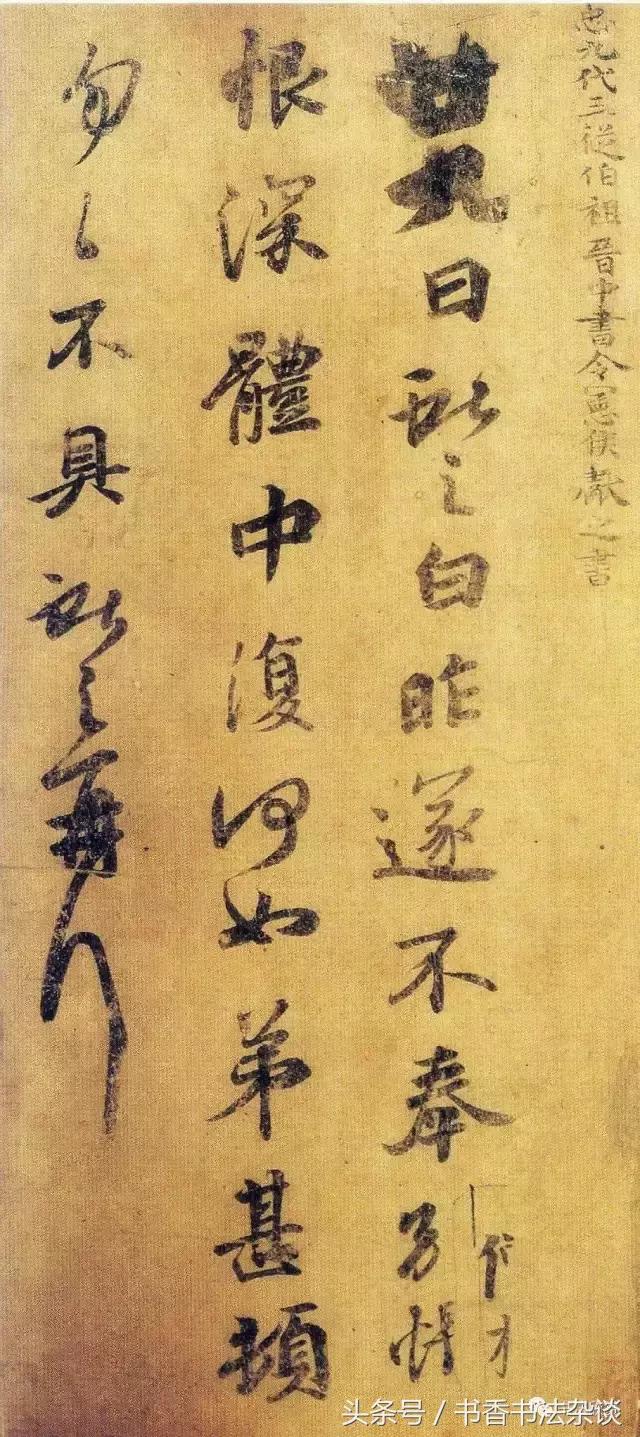 九代三從伯祖晉中書令憲侯獻之書
廿九日獻之白昨遂不奉別悵
恨深體中復何如弟甚頓
匆〻不具獻之再拜
头条号 / 书香书法杂谈